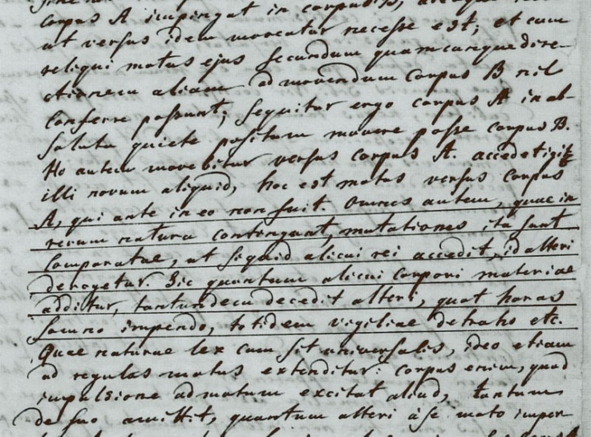 corpus A impingat in corpus B,
ut versus idem moveatur necesse est; et cum
reliqui motus ejus secundum quamcunque dire-
ctionem aliam ad movendum corpus B nil
conferre possunt; sequitur ergo corpus A in ab-
soluta quiete positum movere posse corpus B.
Ho autem movebitur versus corpus A. accedet igitur
illi novum aliquid, hoc est motus versus corpus
A, qui ante in eo non fuit. Omnes autem, quae in
rerum natura contingunt mutationes ita sunt
comparatae, ut si quid alicui rei accedit, id alteri
derogetur. Sic quantum alicui corpori materiae
additur, tantundem decedit alteri, quot horas
somno impendo, totidem vigiliae detraho etc.
Quae naturae lex cum sit universalis, ideo etiam
ad regulas motus extenditur: corpus enim, quod
impulsione ad motum excitat aliud, tantum
de suo amittit, quantum alteri a se moto imper-